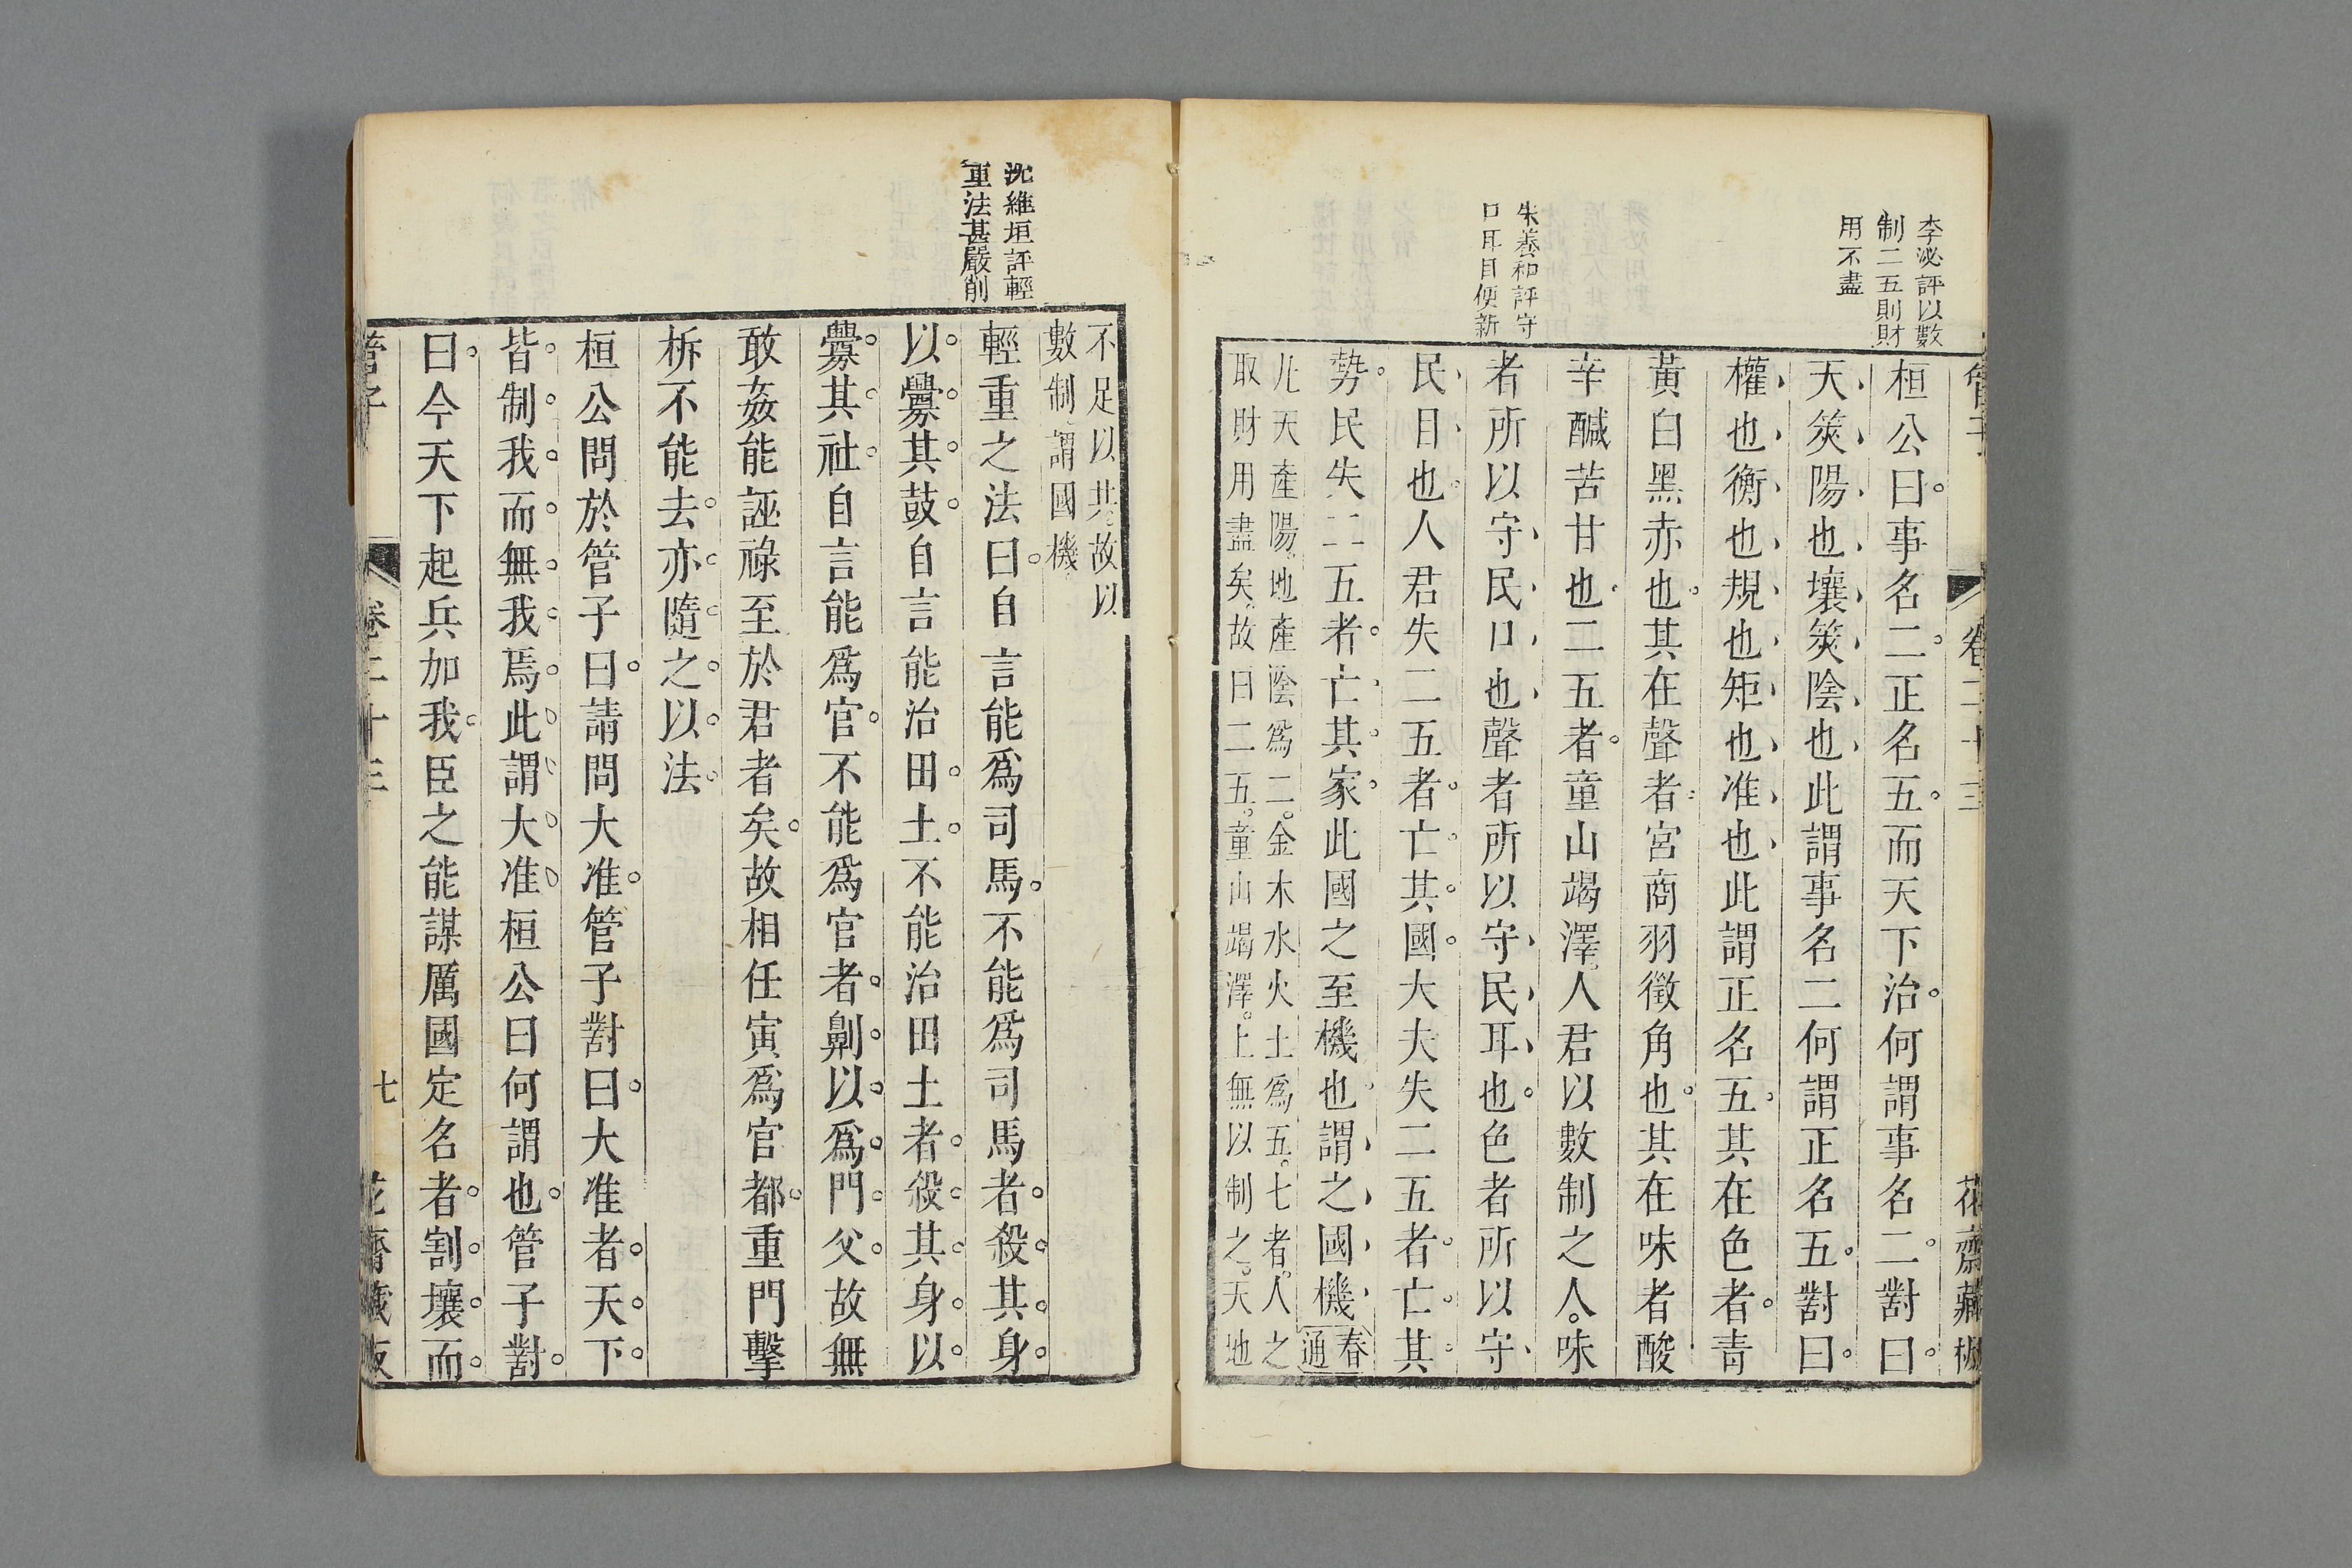 李泌評以數
制二五則財
用不盡
朱養和評守
口耳目便新
管子
卷二十三
花齋藏板
桓公曰事名二正名五而天下治何謂事名二對曰
天筴陽也壤筴陰也此謂事名二何謂正名五對曰
權也衡也規也矩也准也此謂正名五其在色者青
黃白黑赤也其在聲者宮商羽徵角也其在味者酸
辛醎苦甘也二五者童山竭澤人君以數制之人味
者所以守民口也聲者所以守民耳也色者所以守
民目也人君失二五者亡其國大夫失二五者亡其
勢民失二五者亡其家此國之至機也謂之國機
春
通
凡天產陽地產陰爲二金木水火土爲五七者人之
取財用盡矣故曰二五童山竭澤上無以制之天地
沈維垣評輕
重法甚嚴削
不足以共故以
數制謂國機
輕重之法曰自言能爲司馬不能爲司馬者殺其身
以釁其鼓自言能治田土不能治田土者殺其身以
釁其社自言能爲官不能爲官者劓以爲門父故無
敢姦能誣祿至於君者矣故相任寅爲官都重門擊
柝不能去亦隨之以法
桓公問於管子曰請問大准管子對曰大准者天下
皆制我而無我焉此謂大准桓公曰何謂也管子對
曰今天下起兵加我臣之能謀厲國定名者割壤而
管子
卷二十三
七
花齋藏板